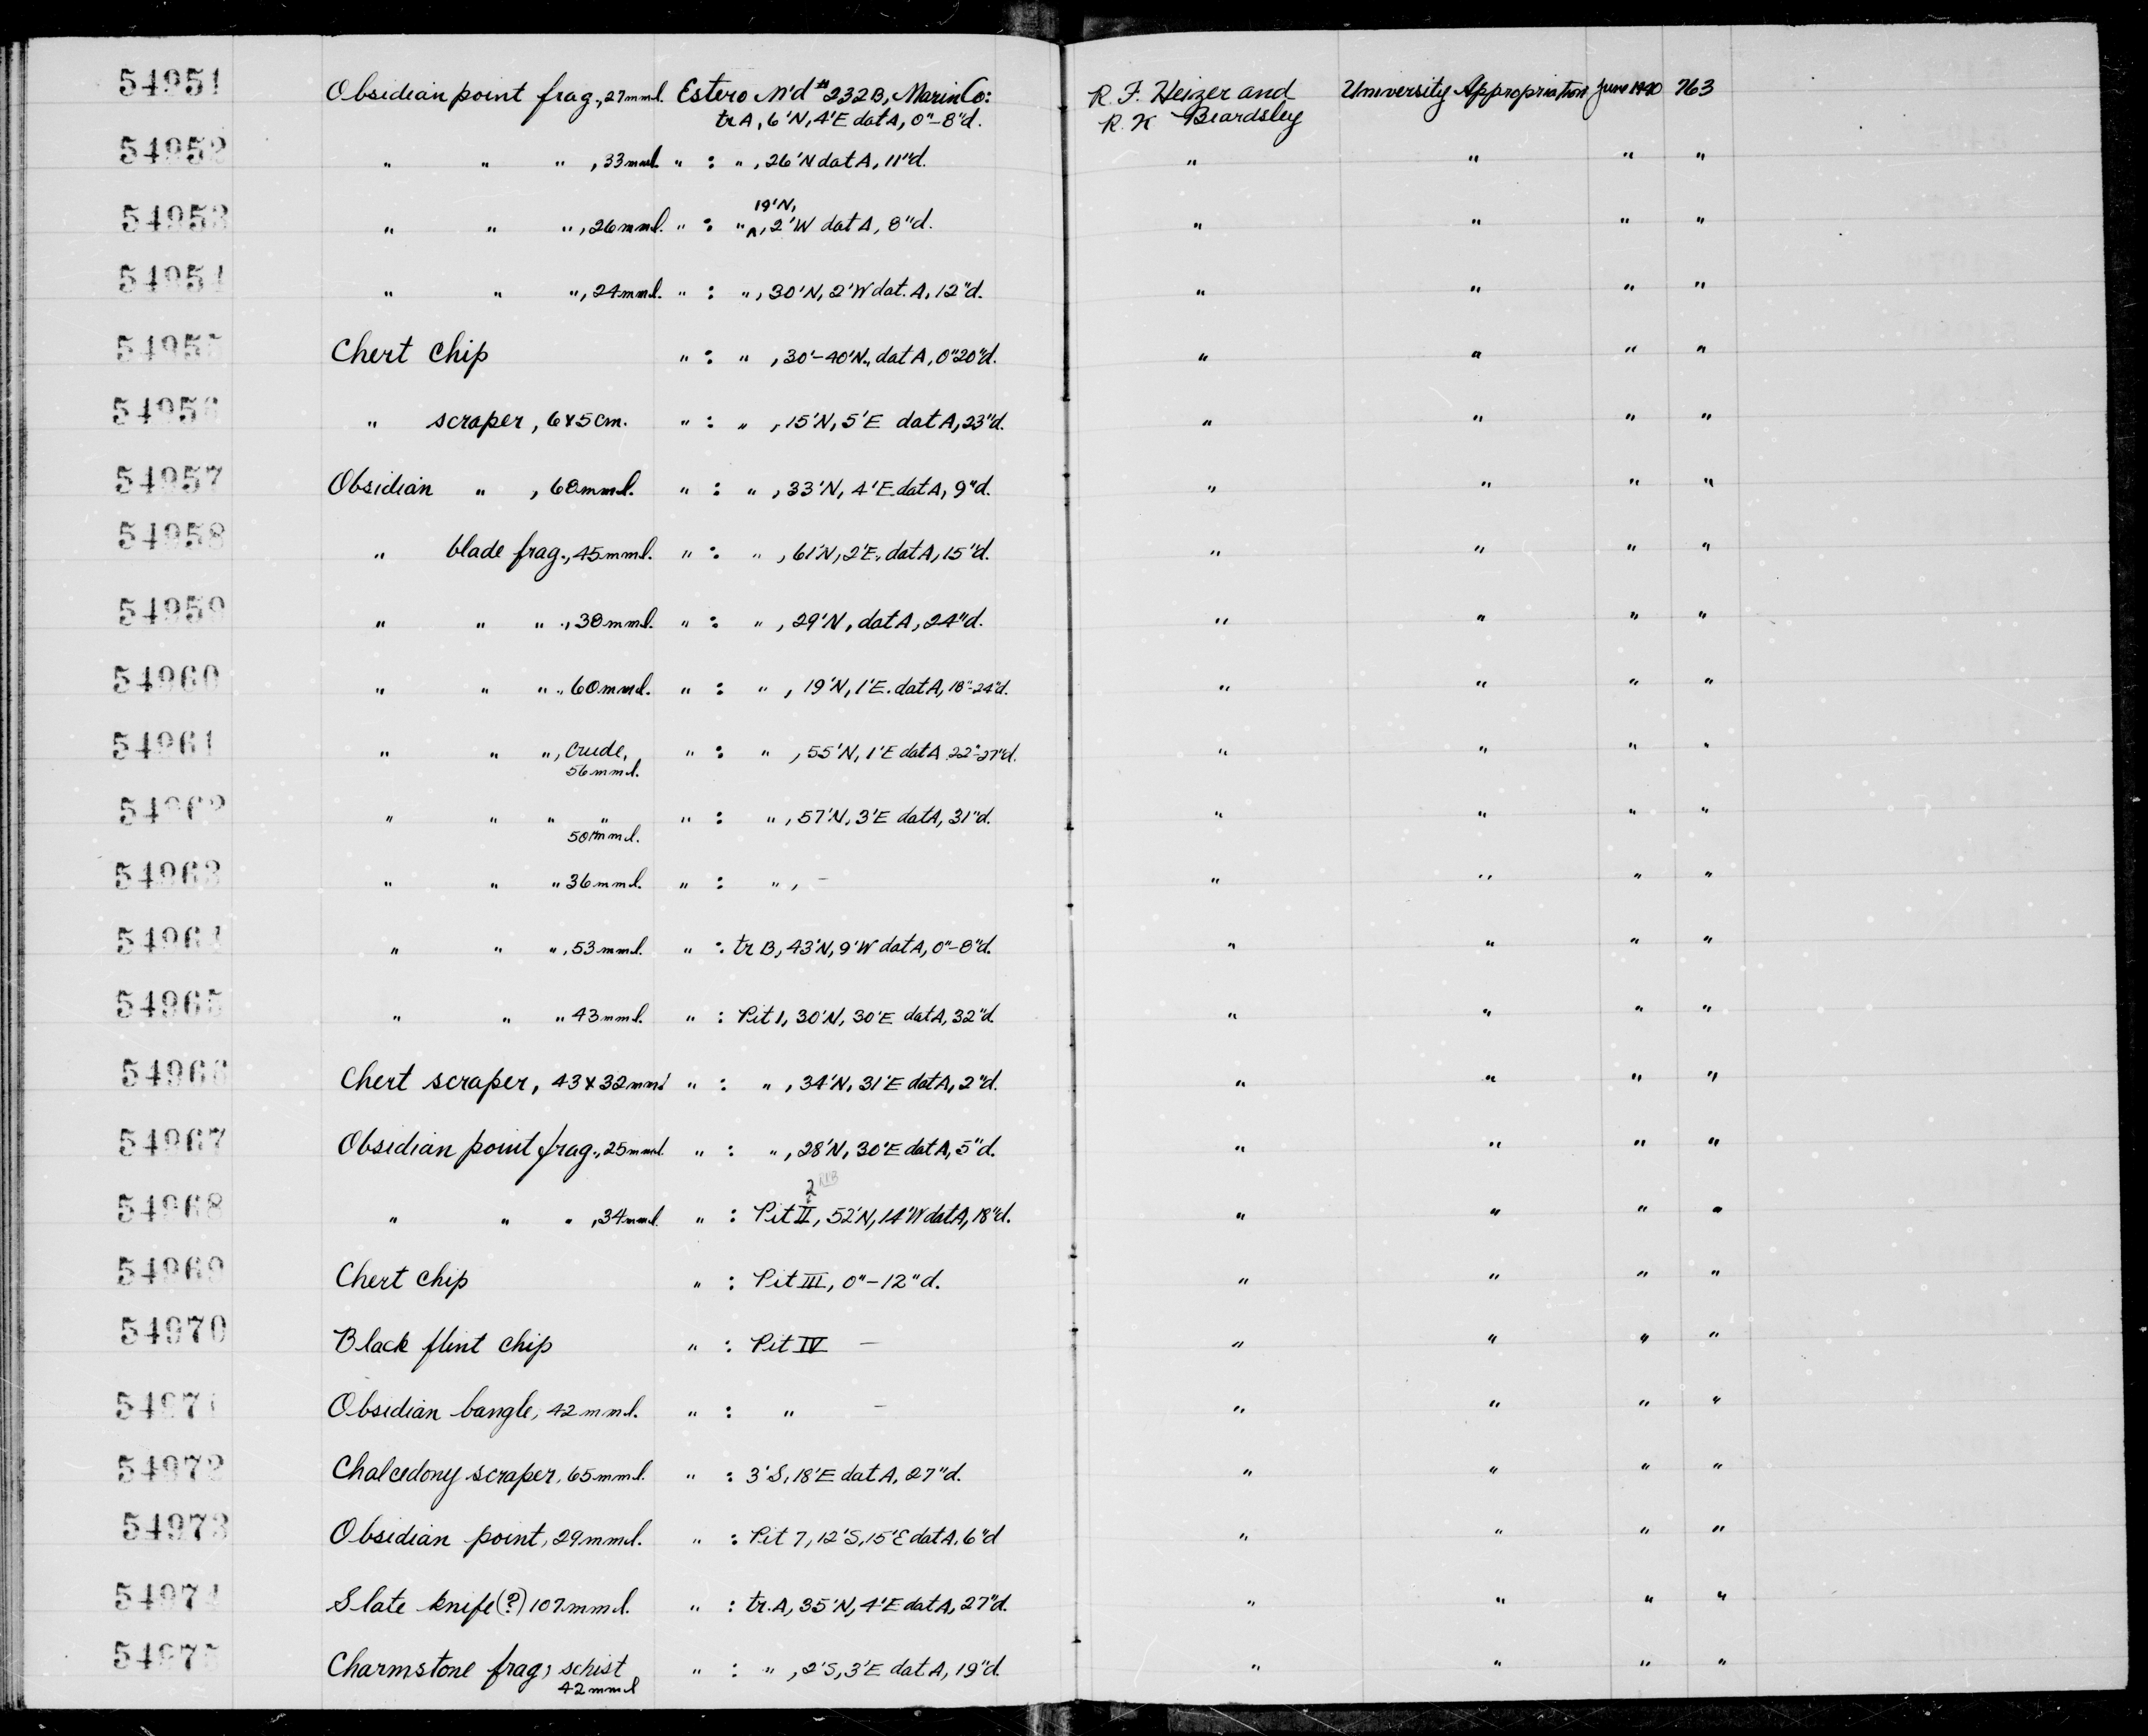 54951 Obsidian point frag., 27mml. Estero M'd #232B, Marin Co: R. F. Heizer and University Appropriation June 1940 763
trA, 6'N, 4'E datA, 0"-8"d. R. K Beardsley
54952 " " " , 33mml. " : " , 26'N datA, 11"d. " " " "
19'N,
54953 " " " , 26mml. " : " ^, 2'W datA, 8"d. " " " "
54954 " " " , 24mml. " : " , 30'N, 2'W dat. A, 12"d. " " " "
54955 Chert chip " : " , 30'-40'N., datA, 0"20"d. " " " "
54956 " scraper, 6x5cm. " : " , 15'N, 5'E datA, 23"d. " " " "
54957 Obsidian " , 68mml. " : " , 33'N, 4'E. datA, 9"d. " " " "
54958 " blade frag., 45mml. " : " , 61'N, 2'E. datA, 15"d. " " " "
54959 " " " ., 38mml. " : " , 29'N, datA, 24"d. " " " "
54960 " " " .. 60mml. " : " , 19'N, 1'E. datA, 18"-24"d. " " " "
54961 " " " , crude, " : " , 55'N, 1'E datA 22"-27"d. " " " "
56mml.
54962 " " " " " : " , 57'N, 3'E datA, 31"d. " " " "
50mml.
54963 " " " 36mml. " : " , – " " " "
54964 " " " , 53mml. " : tr B, 43'N, 9'W datA, 0"-8"d. " " " "
54965 " " " 43mml. " : Pit 1, 30'N, 30'E datA, 32"d. " " " "
54966 Chert scraper, 43x32mml " : " , 34'N, 31'E datA, 2"d. " " " "
54967 Obsidian point frag., 25mml. " : " , 28'N, 30'E datA, 5"d. " " " "
2
54968 " " " , 34mml. " : Pit II, 52'N, 14'W datA, 18"d. " " " "
54969 Chert chip " : Pit III, 0"-12"d. " " " "
54970 Black flint chip " : Pit IV – " " " "
54971 Obsidian bangle, 42mml. " : " – " " " "
54972 Chalcedony scraper, 65mml. " : 3'S, 18'E datA, 27"d. " " " "
54973 Obsidian point, 29mml. " : Pit 7, 12'S, 15'E datA, 6"d " " " "
54974 Slate knife(?) 107mml. " : tr. A, 35'N, 4'E datA, 27"d. " " " "
54975 Charmstone frag, schist " : " , 2'S, 3'E datA, 19"d. " " " "
42mml